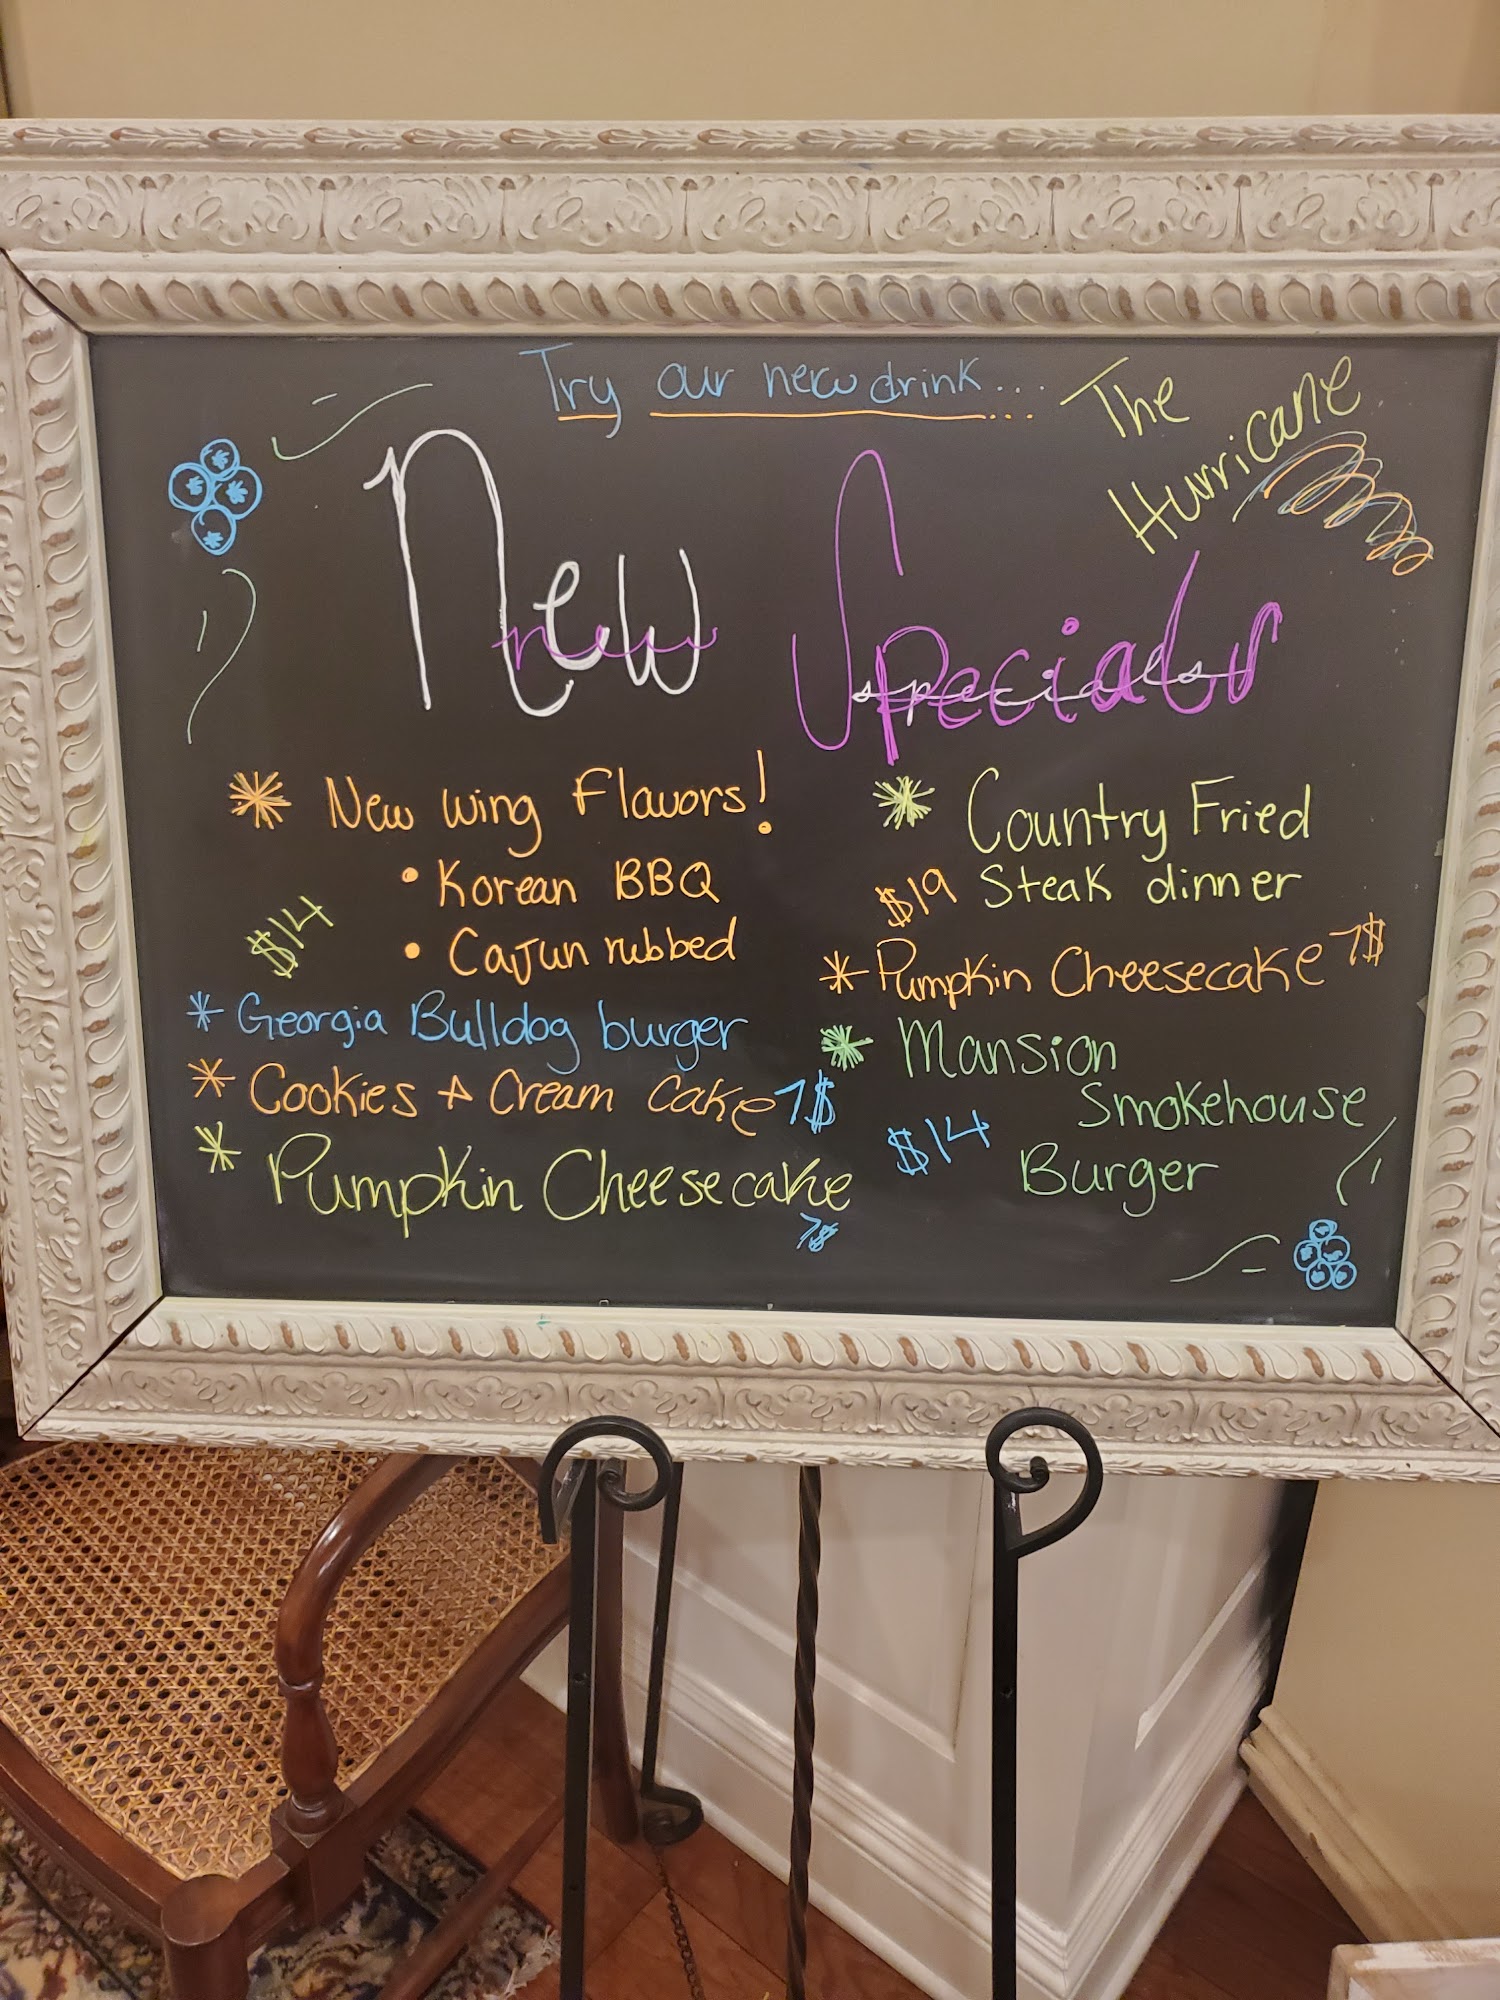 Try our new drink...
The
Hurricane
New Specials
new specials
* New wing Flavors!
• Korean BBQ
$14
• Cajun rubbed
* Georgia Bulldog burger
* Cookies & Cream Cake 7$
* Pumpkin Cheesecake
7$
* Country Fried
$19 Steak dinner
* Pumpkin Cheesecake 7$
* Mansion
Smokehouse
$14 Burger